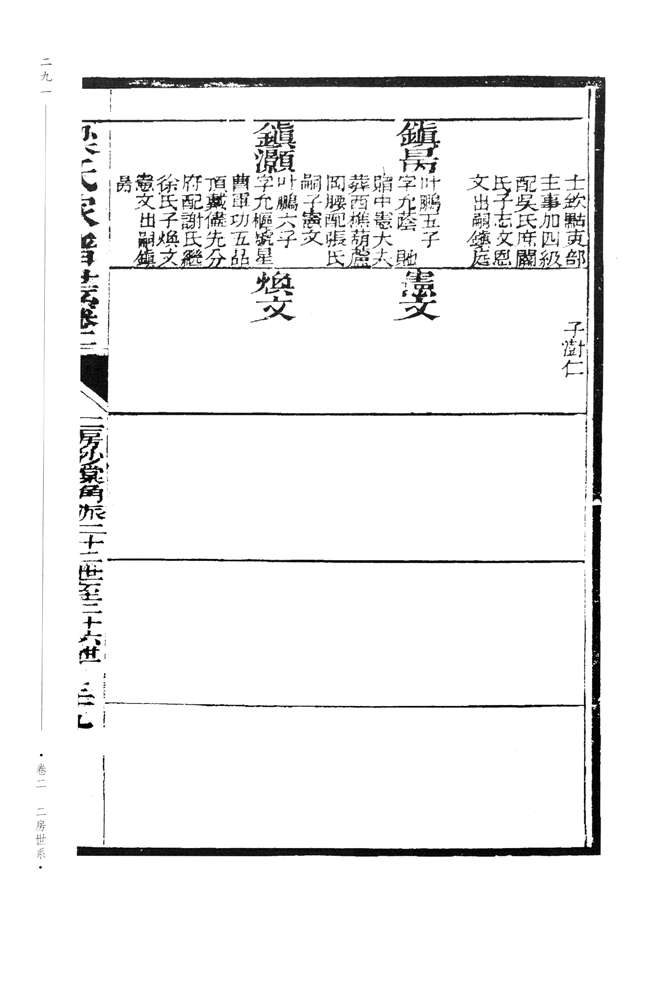 士欽點吏部
主事加四級
配吳氏庶關
氏子志文恩
文出嗣鎮庭
子澍仁
鎮昺
叶鵬五子
字允蔭 貤
贈中憲大夫
葬西樵葫蘆
岡腰配張氏
嗣子憲文
憲文
鎮灝
叶鵬六子
字允樞號星
曹軍功五品
頂戴儘先分
府配謝氏繼
徐氏子煥文
憲文出嗣鎮
昺
煥文
氏家譜
卷二
二房沙棠角派二十二世至二十六世
二九一
·卷二 二房世系·